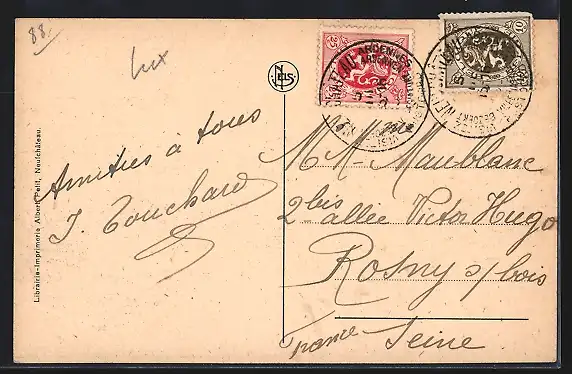 88.
Lux
Amitiés à tous
J. Touchard
Librairie-Imprimerie Albert Petit, Neufchâteau.
NELS
25
10
ARDENNES
Mme
M. Maublanc
2 bis allée Victor Hugo
Rosny s/bois
Seine
France